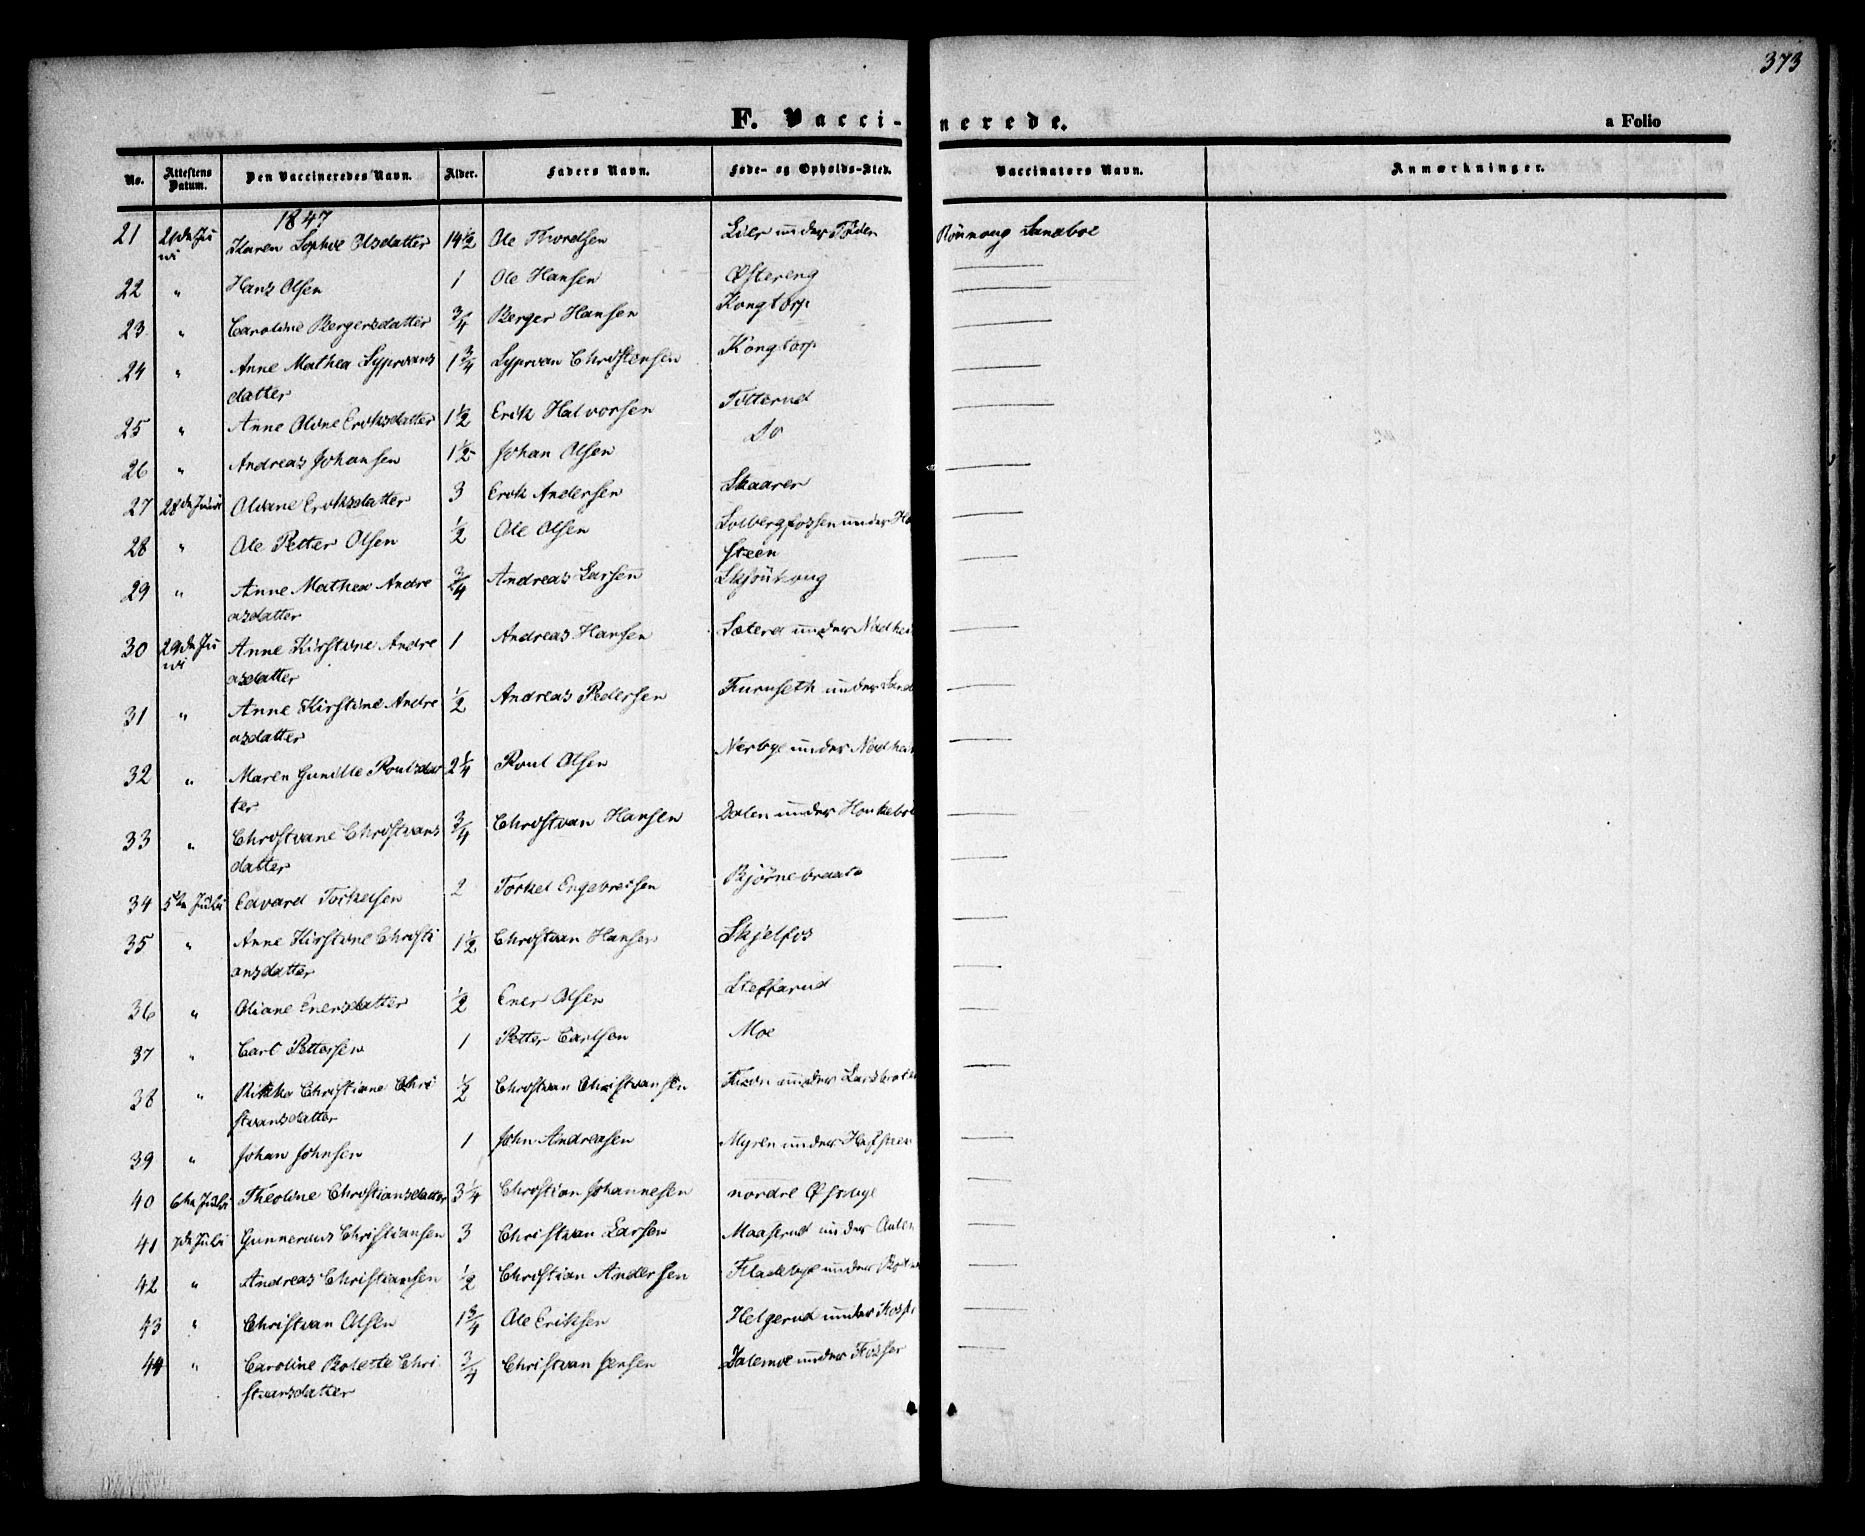 373
F. Vaccinerede.
a Folio
No. Attestens Datum. Den Vaccineredes Navn. Alder. Faders Navn. Føde- og Opholds-Sted. Vaccinators Navn. Anmærkninger.
1847
21 21de Ju Karen Sophie Olsdatter 14 1/2 Ole Thordsen Lier under
ni
22 " Hans Olsen 1 Ole Hansen Østereng
23 " Caroline Bergersdatter 3/4 Berger Hansen Kongtorp
24 " Anne Mathea Syprians 1 3/4 Syprian Christensen Kongtorp
datter
25 " Anne Oline Eriksdatter 1 1/2 Erik Halvorsen Totterud
26 " Andreas Johansen 1 1/2 Johan Olsen Do
27 28de Juni Oliane Eriksdatter 3 Erik Andersen Skaarer
28 " Ole Petter Olsen 1/2 Ole Olsen Solbergfossen under
steen
29 " Anne Mathea Andre 3/4 Andreas Larsen
asdatter
30 29de Ju Anne Kirstine Andre 1 Andreas Hansen under
ni asdatter
31 " Anne Kirstine Andre 1/2 Andreas Pedersen Furuseth under
asdatter
32 " Maren Gunille Poulsdat 2 1/4 Poul Olsen Nerbye under
ter
33 " Christiane Christians 3/4 Christian Hansen Dalen under
datter
34 5te Juli Edvard Torkelsen 2 Torkel Engebretsen Bjørnebraate
35 " Anne Kirstine Christi 1 1/2 Christian Hansen Skjelfos
ansdatter
36 " Oliane Enersdatter 1/2 Ener Olsen Steffarud
37 " Carl Pettersen 1 Petter Carlsen Moe
38 " Rikka Christiane Chri 1/2 Christian Christiansen under
stiansdatter
39 " Johan Johnsen 1 John Andreasen Myren under
40 6te Juli Theoline Christiansdatter 3 1/4 Christian Johannesen nordre Østbye
41 7de Juli Gunnerius Christiansen 3 Christian Larsen Maaserud under
42 " Andreas Christiansen 1/2 Christian Andersen Fladebye under
43 " Christian Olsen 1 3/4 Ole Eriksen Helgerud under
44 " Caroline Bolette Chri 3/4 Christian Jensen Dalemoe under Fosser
stiansdatter